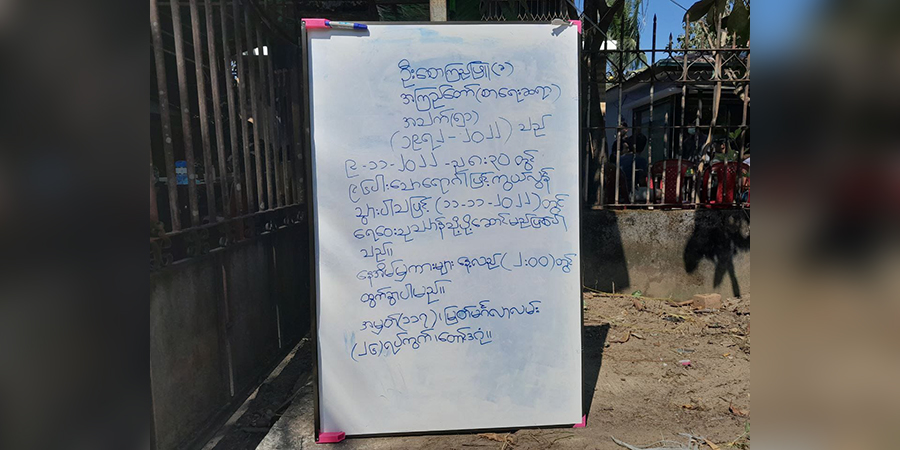 ဦးစောကြည်ဖြူ(ခ)
အကြည်တော်(စာရေးဆရာ)
အသက်(၅၁)
(၁၉၇၂-၂၀၂၂) သည်
၉-၁၁-၂၀၂၂-ည ၇း၃၀ တွင်
နှလုံးသွေးရောဂါဖြင့် ကွယ်လွန်
သွားပါသဖြင့် (၁၁-၁၁-၂၀၂၂)တွင်
ရေဝေးသုသာန်သို့ပို့ဆောင်မည်ဖြစ်ပါ
သည်။
နေအိမ်မှကားများ နေ့လည်(၂:၀၀)တွင်
ထွက်ခွာပါမည်။
အမှတ်(၁၁၇)၊မြတ်မင်္ဂလာလမ်း
(၂၆)ရပ်ကွက်၊တောင်ဒဂုံ။